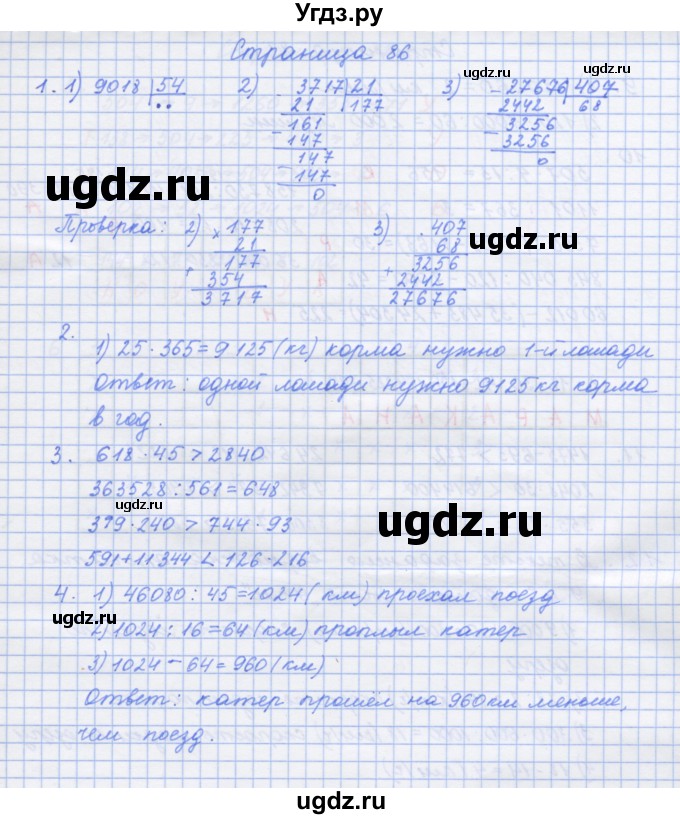 Угдз.ру
Страница 86
1. 1) 9018 | 54 2) - 3717 | 21 3) - 27676 | 407
• • 21 177 2442 68
- 161 - 3256
147 3256
- 147 0
147
0
Проверка: 2) × 177 3) . 407
21 68
+ 177 + 3256
354 2442
3717 27676
2.
1) 25 · 365 = 9125 (кг) корма нужно 1-й лошади
Ответ: одной лошади нужно 9125 кг корма
в год.
3. 618 · 45 > 2840
363528 : 561 = 648
379 · 240 > 744 · 93
591 + 11344 < 126 · 216
4. 1) 46080 : 45 = 1024 (км) проехал поезд
2) 1024 : 16 = 64 (км) проплыл катер
3) 1024 − 64 = 960 (км)
Ответ: катер прошёл на 960 км меньше,
чем поезд.
ugdz.ru
ugdz.ru
ugdz.ru
ugdz.ru
ugdz.ru
ugdz.ru
ugdz.ru
ugdz.ru
ugdz.ru